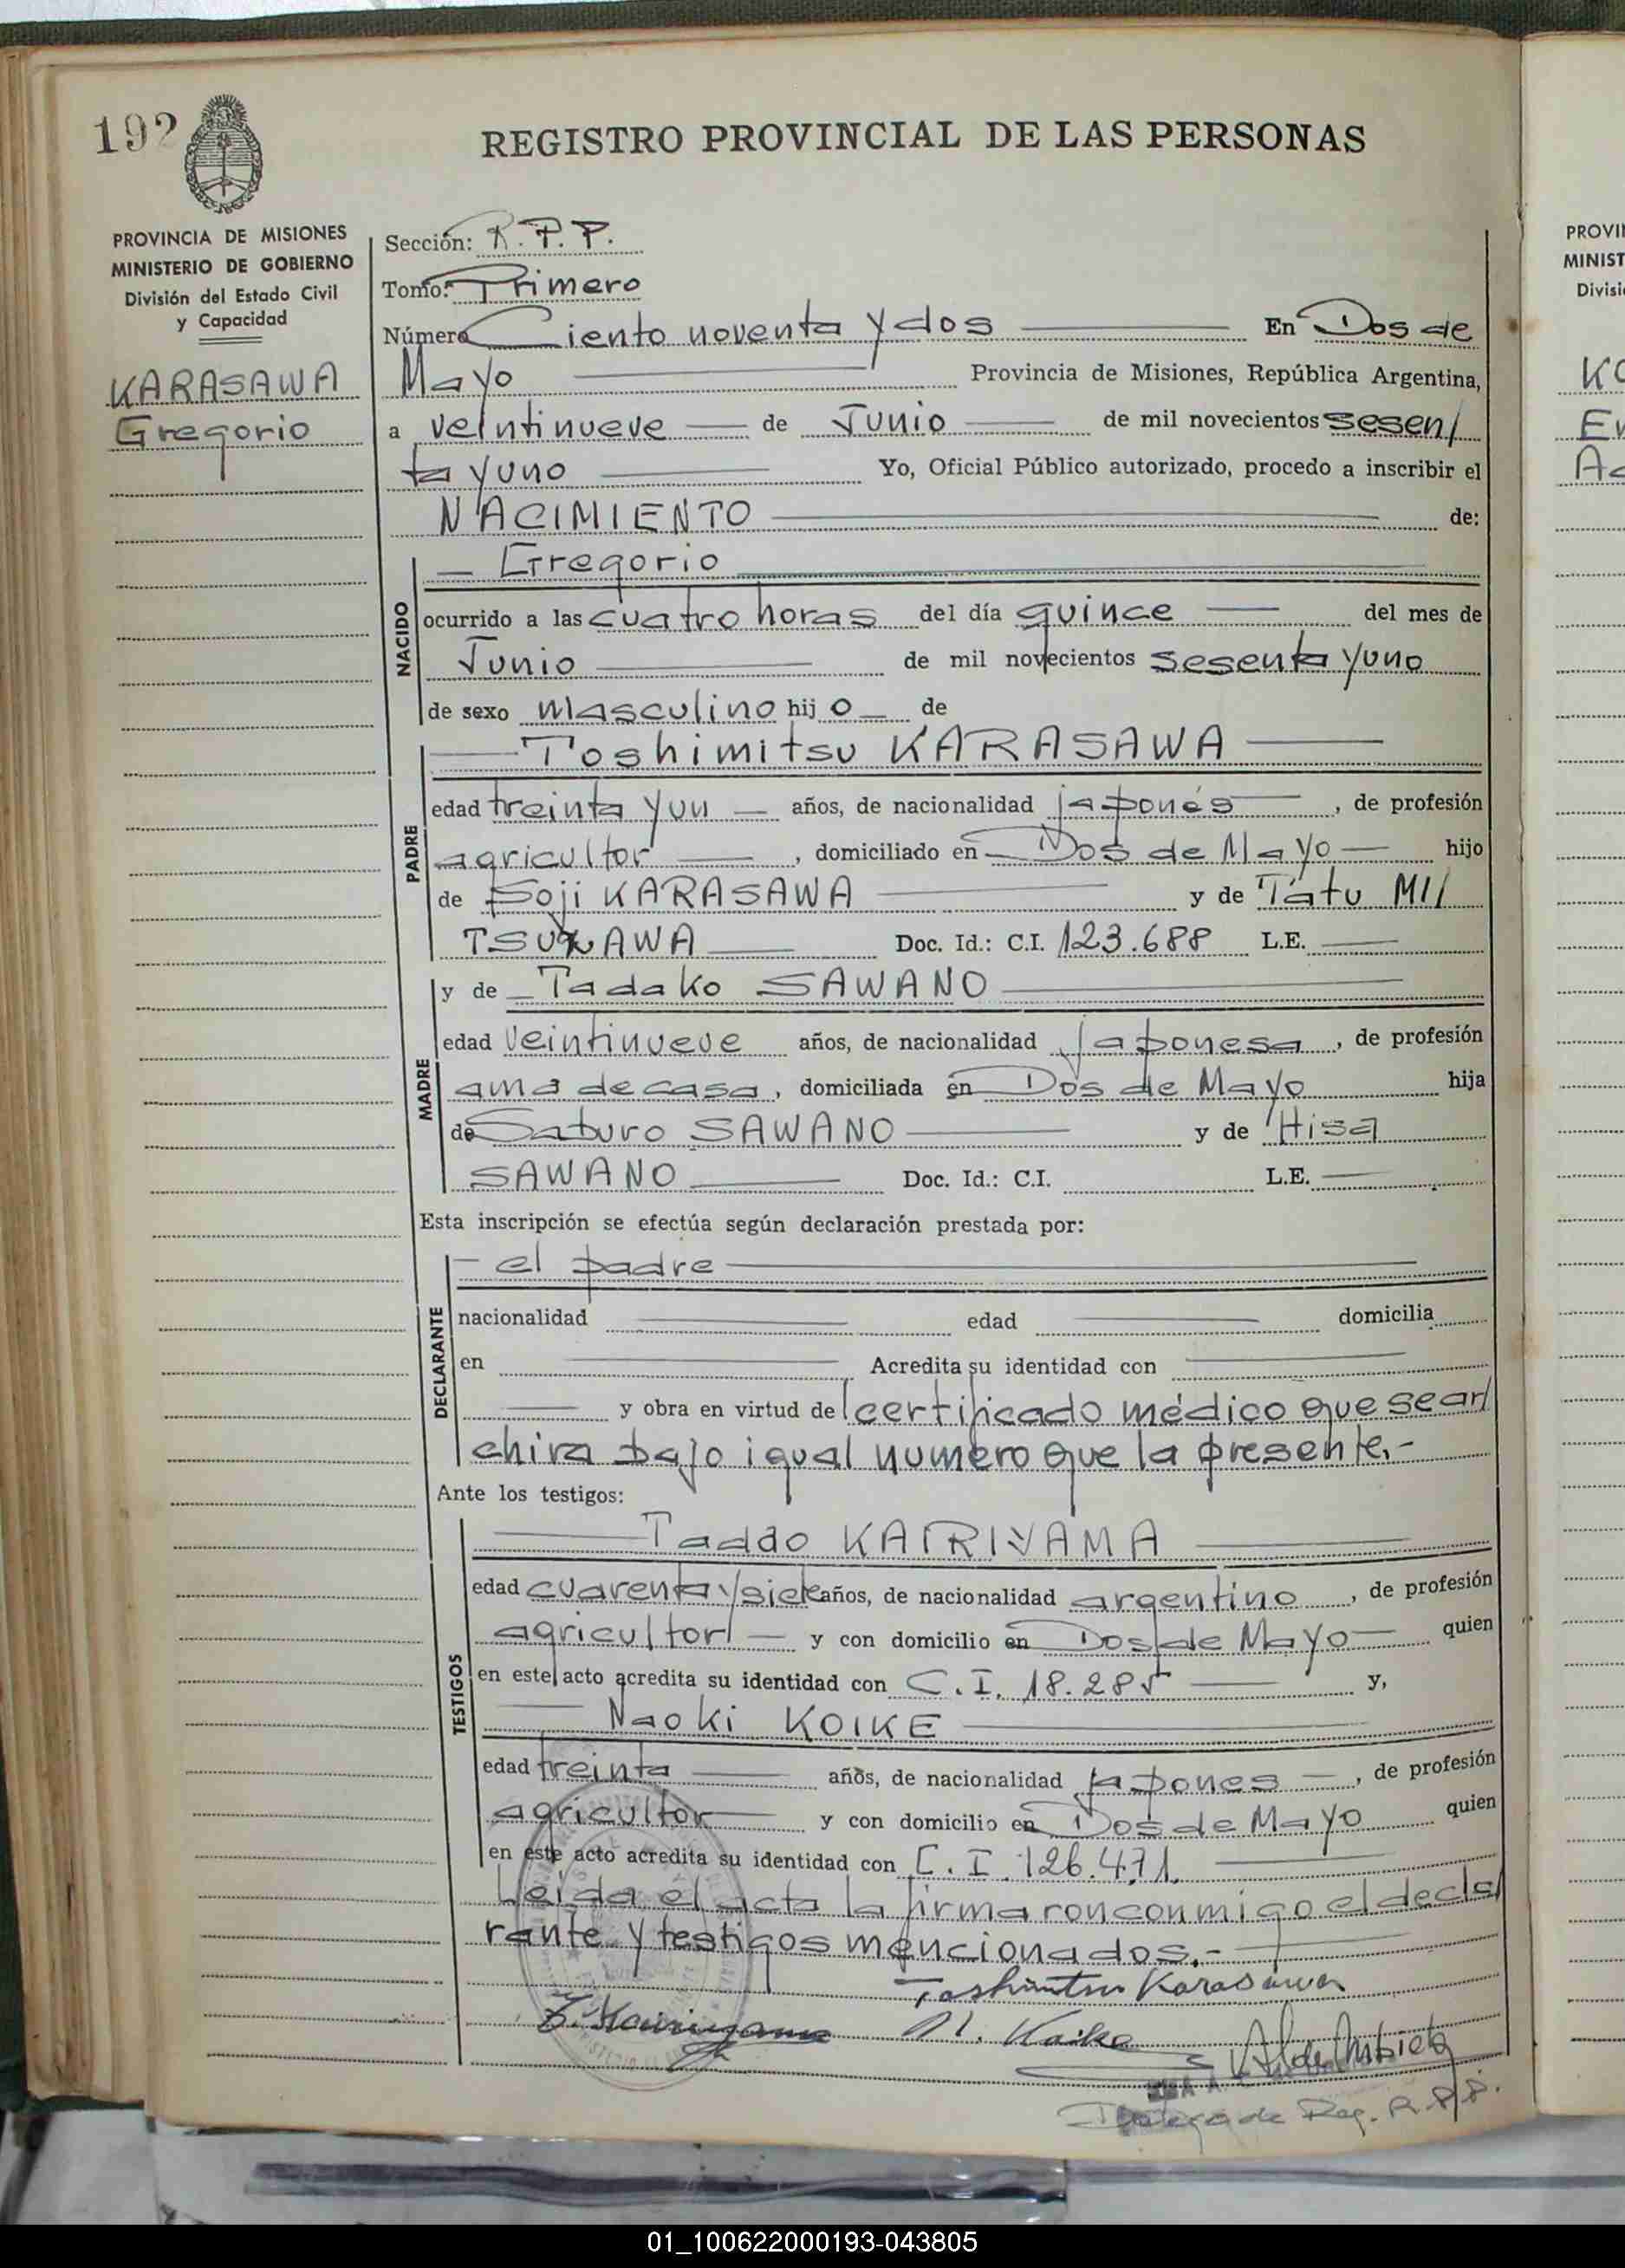 192
REGISTRO PROVINCIAL DE LAS PERSONAS
PROVINCIA DE MISIONES
MINISTERIO DE GOBIERNO
División del Estado Civil
y Capacidad
KARASAWA
Gregorio
Sección: R.P.P.
Tomo: Primero
Número Ciento noventa y dos En Dos de
Mayo Provincia de Misiones, República Argentina,
a veintinueve de Junio de mil novecientos sesen/
ta y uno Yo, Oficial Público autorizado, procedo a inscribir el
NACIMIENTO de:
NACIDO
Gregorio
ocurrido a las cuatro horas del día quince del mes de
Junio de mil novecientos sesenta y uno
de sexo masculino hij o de
PADRE
Toshimitsu KARASAWA
edad treinta y un años, de nacionalidad japonés, de profesión
agricultor, domiciliado en Dos de Mayo hijo
de Soji KARASAWA y de Tatu MI/
TSUKAWA Doc. Id.: C.I. 123.688 L.E.
MADRE
y de Tadako SAWANO
edad veintinueve años, de nacionalidad japonesa, de profesión
ama de casa, domiciliada en Dos de Mayo hija
de Saburo SAWANO y de Hisa
SAWANO Doc. Id.: C.I. L.E.
Esta inscripción se efectúa según declaración prestada por:
DECLARANTE
el padre
nacionalidad edad domicilia
en Acredita su identidad con
y obra en virtud de certificado médico que se ar/
chiva bajo igual numero que la presente.-
Ante los testigos:
TESTIGOS
Tadao KAIRIYAMA
edad cuarenta y siete años, de nacionalidad argentino, de profesión
agricultor y con domicilio en Dos de Mayo quien
en este acto acredita su identidad con C.I. 18.285 y,
Naoki KOIKE
edad treinta años, de nacionalidad japones, de profesión
agricultor y con domicilio en Dos de Mayo quien
en este acto acredita su identidad con C.I. 126.471.
Leida el acta la firmaron conmigo el decla/
rante y testigos mencionados.-
Toshimitsu Karasawa
N. Koike
Reg. R.P.P.
PROVI
MINIST
Divisi
KO
01_100622000193-043805